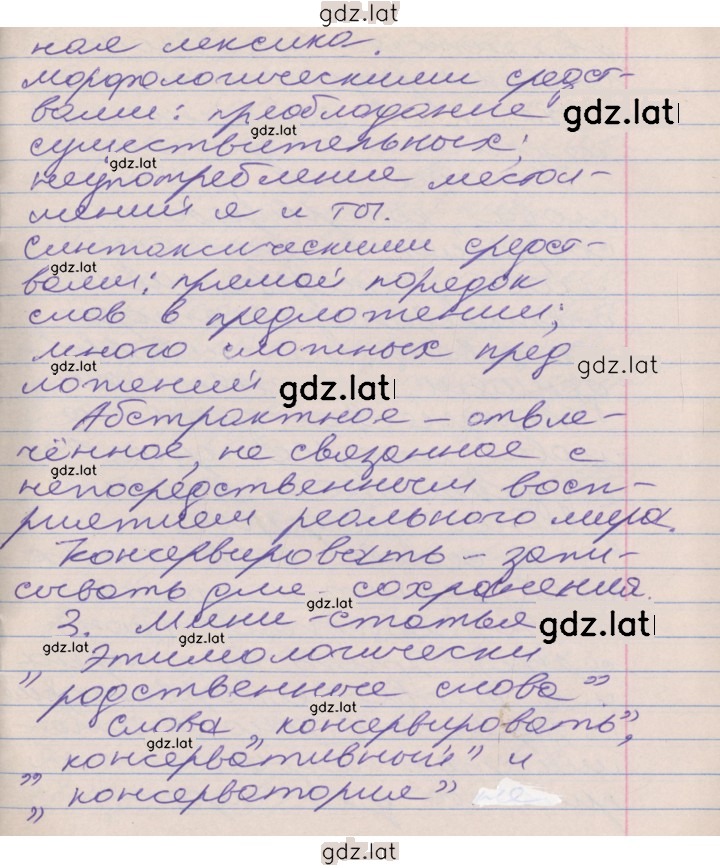 gdz.lat
ная лексика.
морфологическими средст-
вами: преобладание
gdz.lat
gdz.lat
существительных;
gdz.lat
неупотребление местои-
мений я и ты.
синтаксическими средст-
gdz.lat
вами: прямой порядок
слов в предложении;
много сложных пред
gdz.lat
ложений
gdz.lat
Абстрактное – отвле-
чённое, не связанное с
gdz.lat
непосредственным восп-
риятием реального мира.
Консервировать – запи-
сывать для сохранения.
gdz.lat
3. Мини-статья
gdz.lat
gdz.lat
gdz.lat
Этимологически
„родственные слова”
Слова „консервировать”,
gdz.lat
„консервативный” и
„консерватория”
gdz.lat